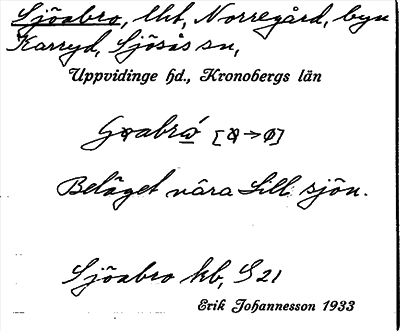 Sjöabro, lht, Norregård, byn
Karryd, Sjösås sn,
Uppvidinge hd., Kronobergs län
Beläget nära till sjön.
Sjöabro kb, S 21
Erik Johannesson 1933